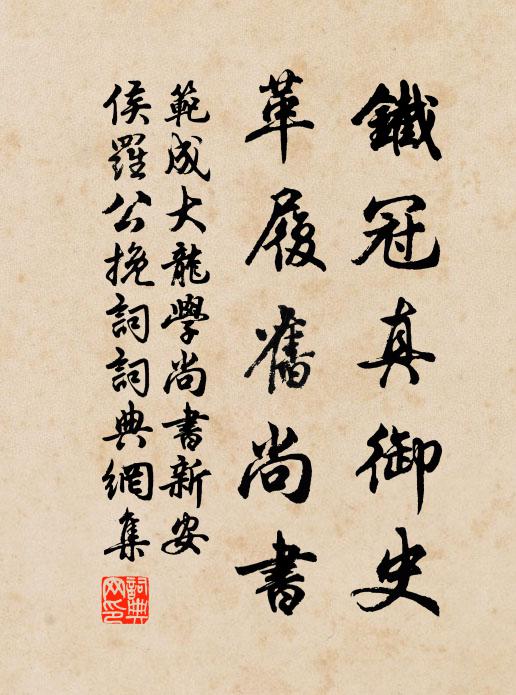 鐵冠真御史
革履舊尚書
範成大龍學尚書新安
侯羅公挽詞詞典網集
詞典网印